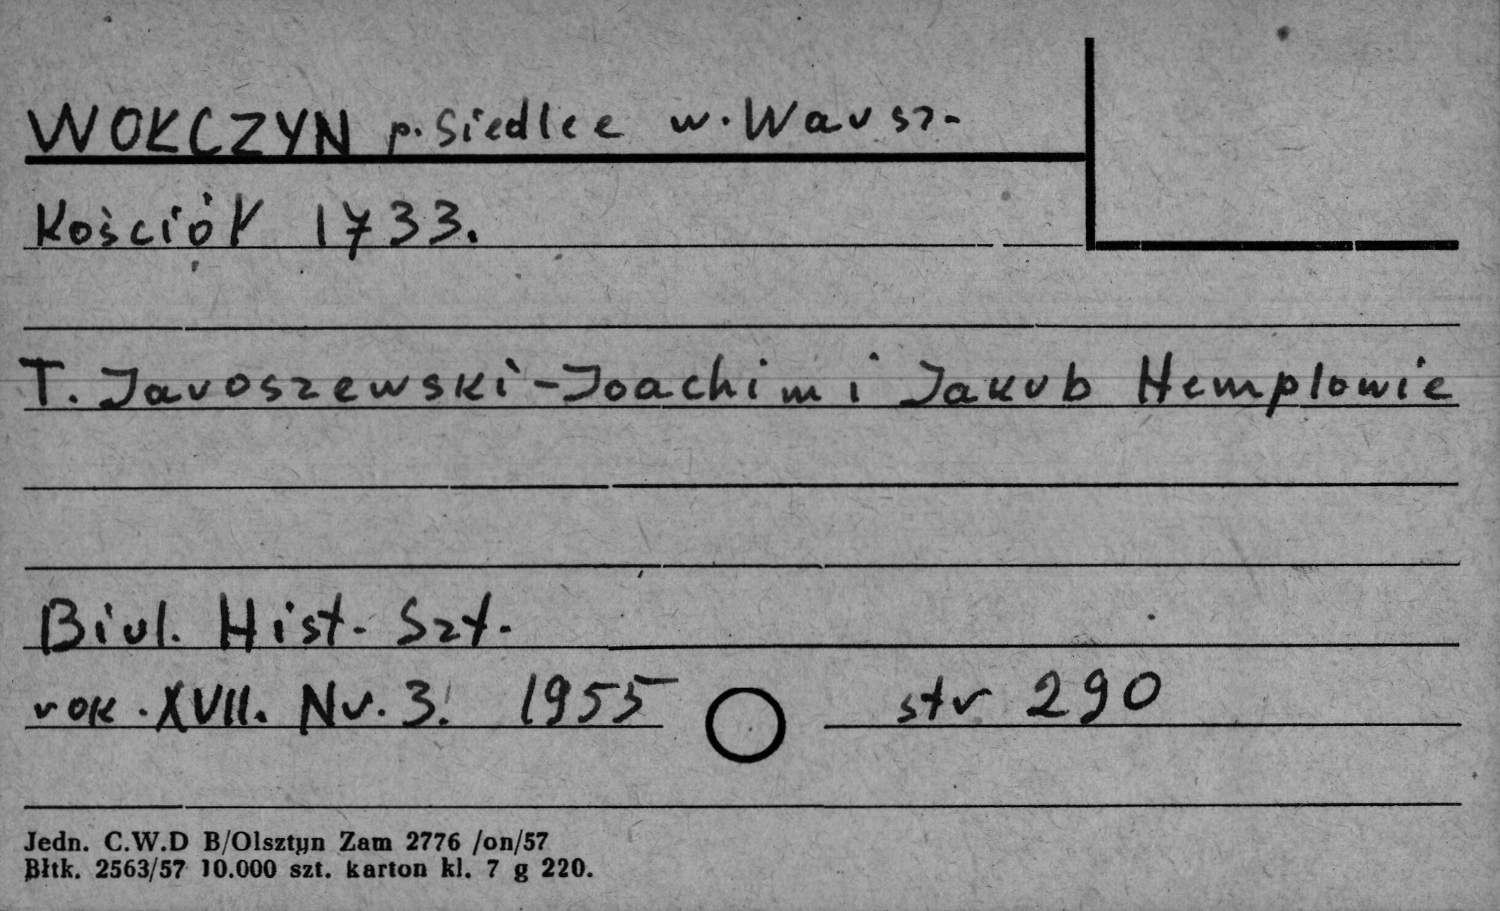 WOŁCZYN p. Siedlce w. Warsz.
Kościół 1733.
T. Jaroszewski - Joachim i Jakub Hemplowie
Biul. Hist. Szt.
rok. XVII. Nr. 3. 1955 str 290
Jedn. C.W.D B/Olsztyn Zam 2776 /on/57
Błtk. 2563/57 10.000 szt. karton kl. 7 g 220.